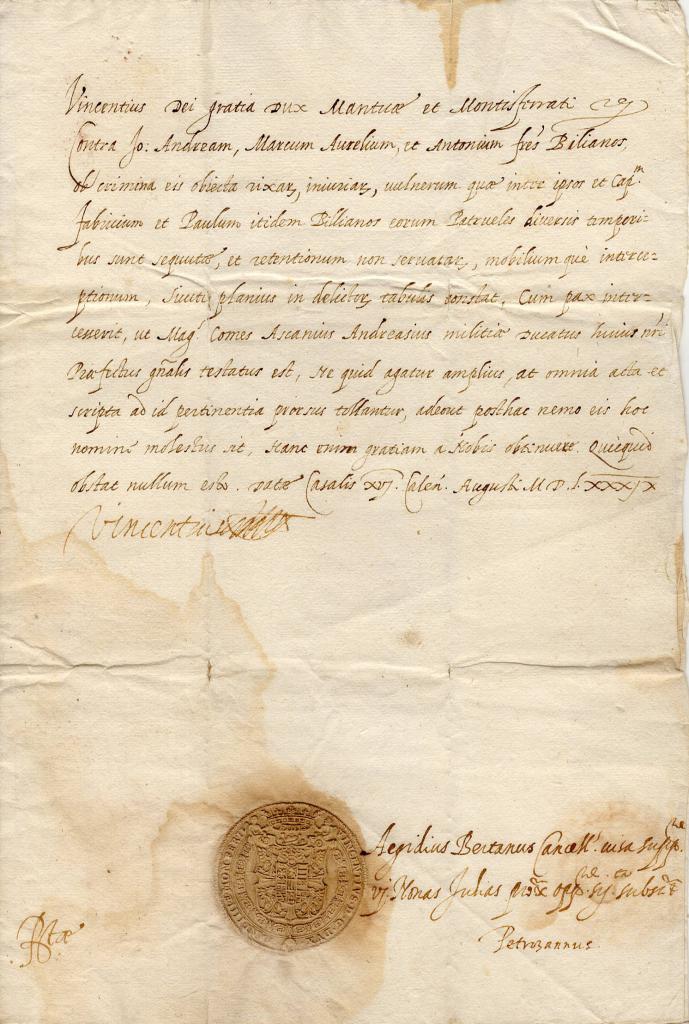 Vincentius Dei gratia Dux Mantuæ et Montisferrati
Contra Jo: Andream, Marcum Aurelium, et Antonium fres Bilianos,
ob crimina eis obiecta rixar, iniuriar, vulnerum quæ inter ipsos et Capm.
Fabricium et Paulum itidem Billianos eorum Patrueles diversis tempori-
bus sunt sequutæ, et retentionum non servatar, mobilium què interce-
ptionum, sicuti planius in delictor tabulis constat. Cum pax inter-
cesserit, ut Mag. Comes Ascanius Andreasius militiæ Ducatus huius nri
Præfectus gnalis testatus est, Ne quid agatur amplius, at omnia acta et
scripta ad id pertinentia prorsus tollantur, adeout posthac nemo eis hoc
nomine molestus sit, Hanc enim gratiam a Nobis obtinuere. Quicquid
obstat nullum esto. Datæ Casalis xvj. Calen. Augusti M.D.LXXXIX
Vincentius
Aegidius Bertanus Cancell. visa supp.
vj. Nonas Julias
Petrozannus